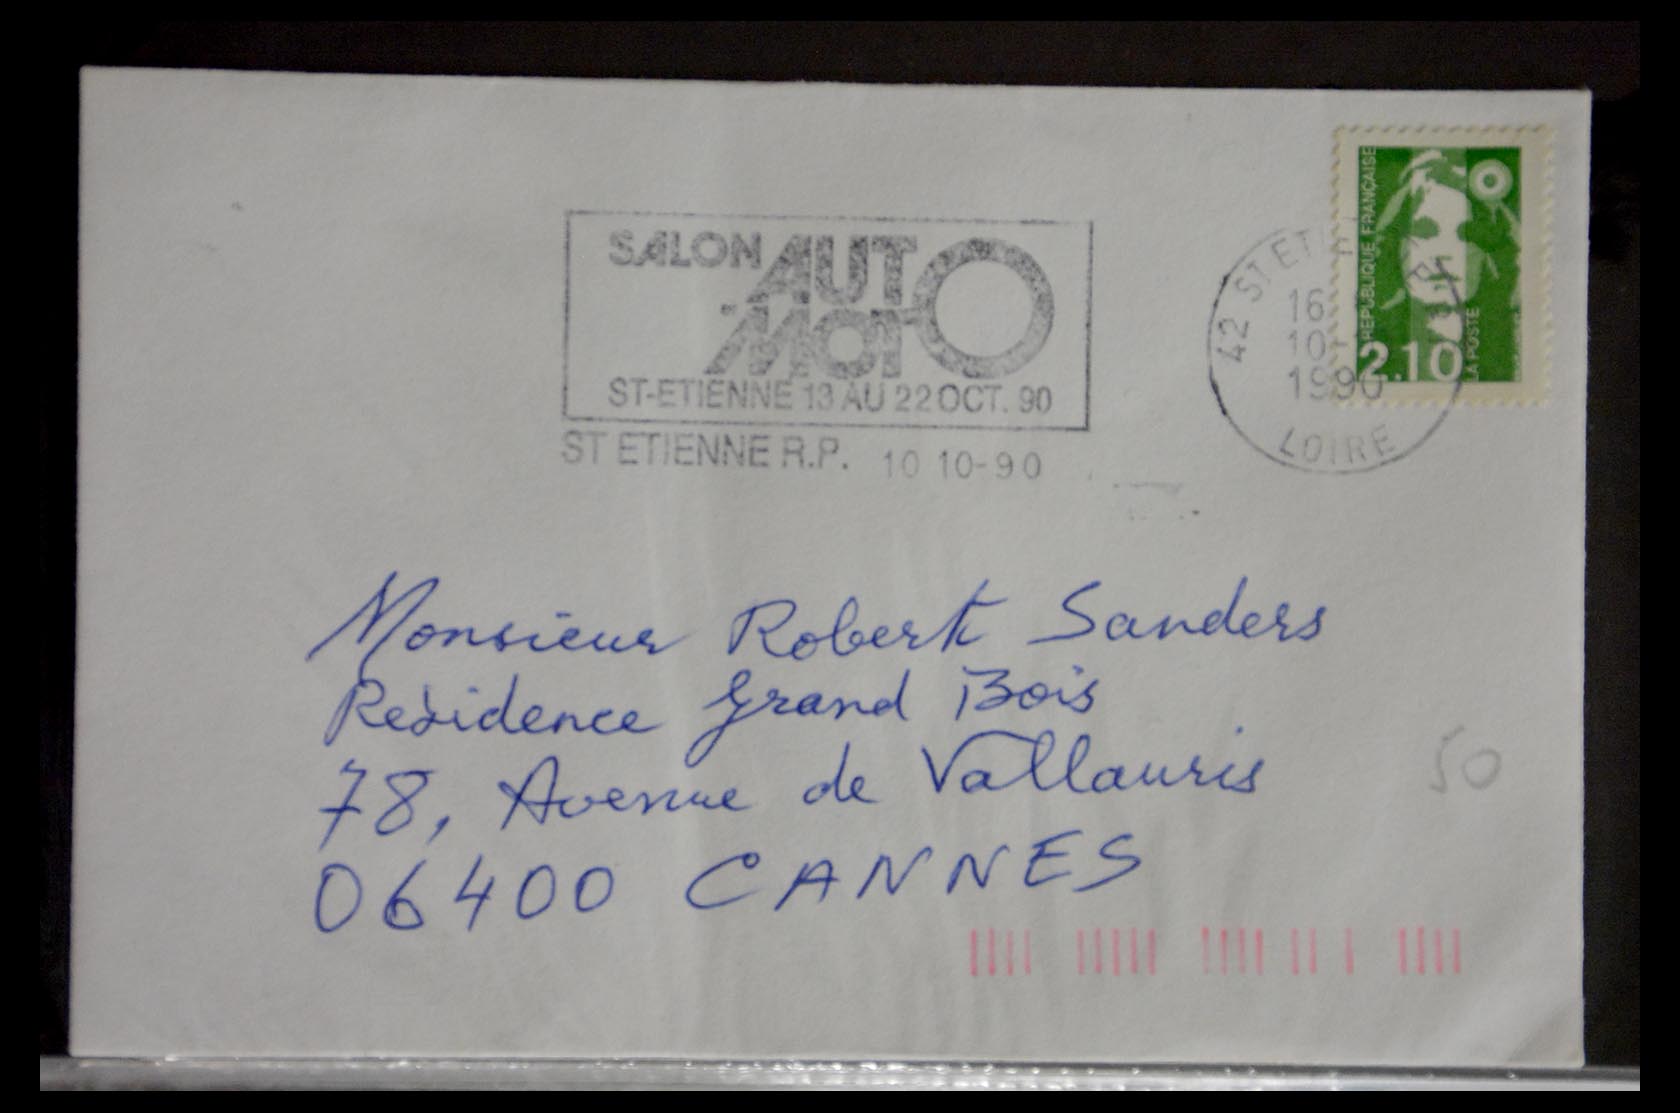 SALON AUTO
MOTO
ST-ETIENNE 13 AU 22 OCT. 90
ST ETIENNE R.P. 10 10-90
REPUBLIQUE FRANÇAISE
2.10
LA POSTE
42 ST
16
10
1990
LOIRE
Monsieur Robert Sanders
Residence Grand Bois
78, Avenue de Vallauris
06400 CANNES
50